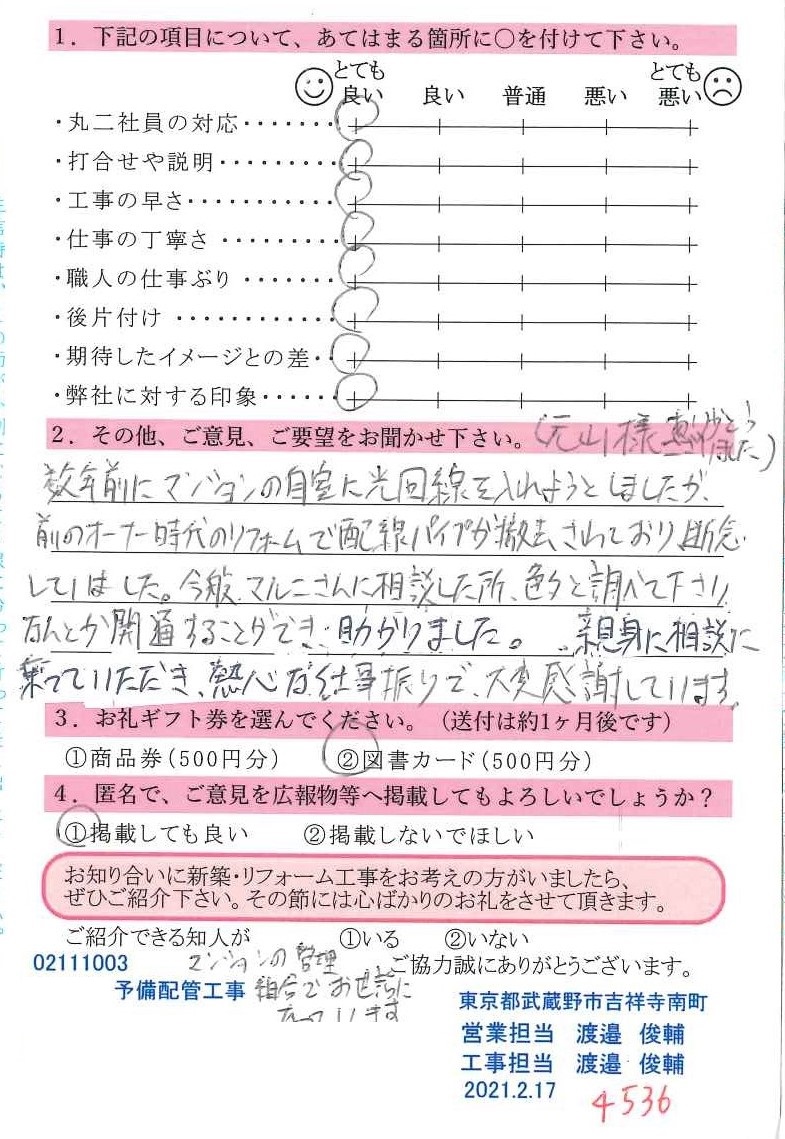 1．下記の項目について、あてはまる箇所に○を付けて下さい。
とても良い 良い 普通 悪い とても悪い
・丸二社員の対応・・・・・・・
・打合せや説明・・・・・・・・・
・工事の早さ・・・・・・・・・・・
・仕事の丁寧さ・・・・・・・・・
・職人の仕事ぶり・・・・・・・
・後片付け・・・・・・・・・・・・
・期待したイメージとの差・・
・弊社に対する印象・・・・・・
2．その他、ご意見、ご要望をお聞かせ下さい。(元山様
ました)
数年前にマンションの自室に光回線を入れようとしましたが、
前のオーナー時代のリフォームで配線パイプが撤去されており断念
していました。今般、マルニさんに相談した所、色々と調べて下さり
なんとか開通することができ、助かりました。親身に相談に
乗っていただき、熱心な仕事振りで、大変感謝しています。
3．お礼ギフト券を選んでください。（送付は約1ヶ月後です）
①商品券(500円分) ②図書カード(500円分)
4．匿名で、ご意見を広報物等へ掲載してもよろしいでしょうか？
①掲載しても良い ②掲載しないでほしい
お知り合いに新築・リフォーム工事をお考えの方がいましたら、
ぜひご紹介下さい。その節には心ばかりのお礼をさせて頂きます。
ご紹介できる知人が ①いる ②いない
マンションの管理
組合でお世話に
なっています
ご協力誠にありがとうございます。
02111003
予備配管工事
東京都武蔵野市吉祥寺南町
営業担当 渡邉 俊輔
工事担当 渡邉 俊輔
2021.2.17
4536